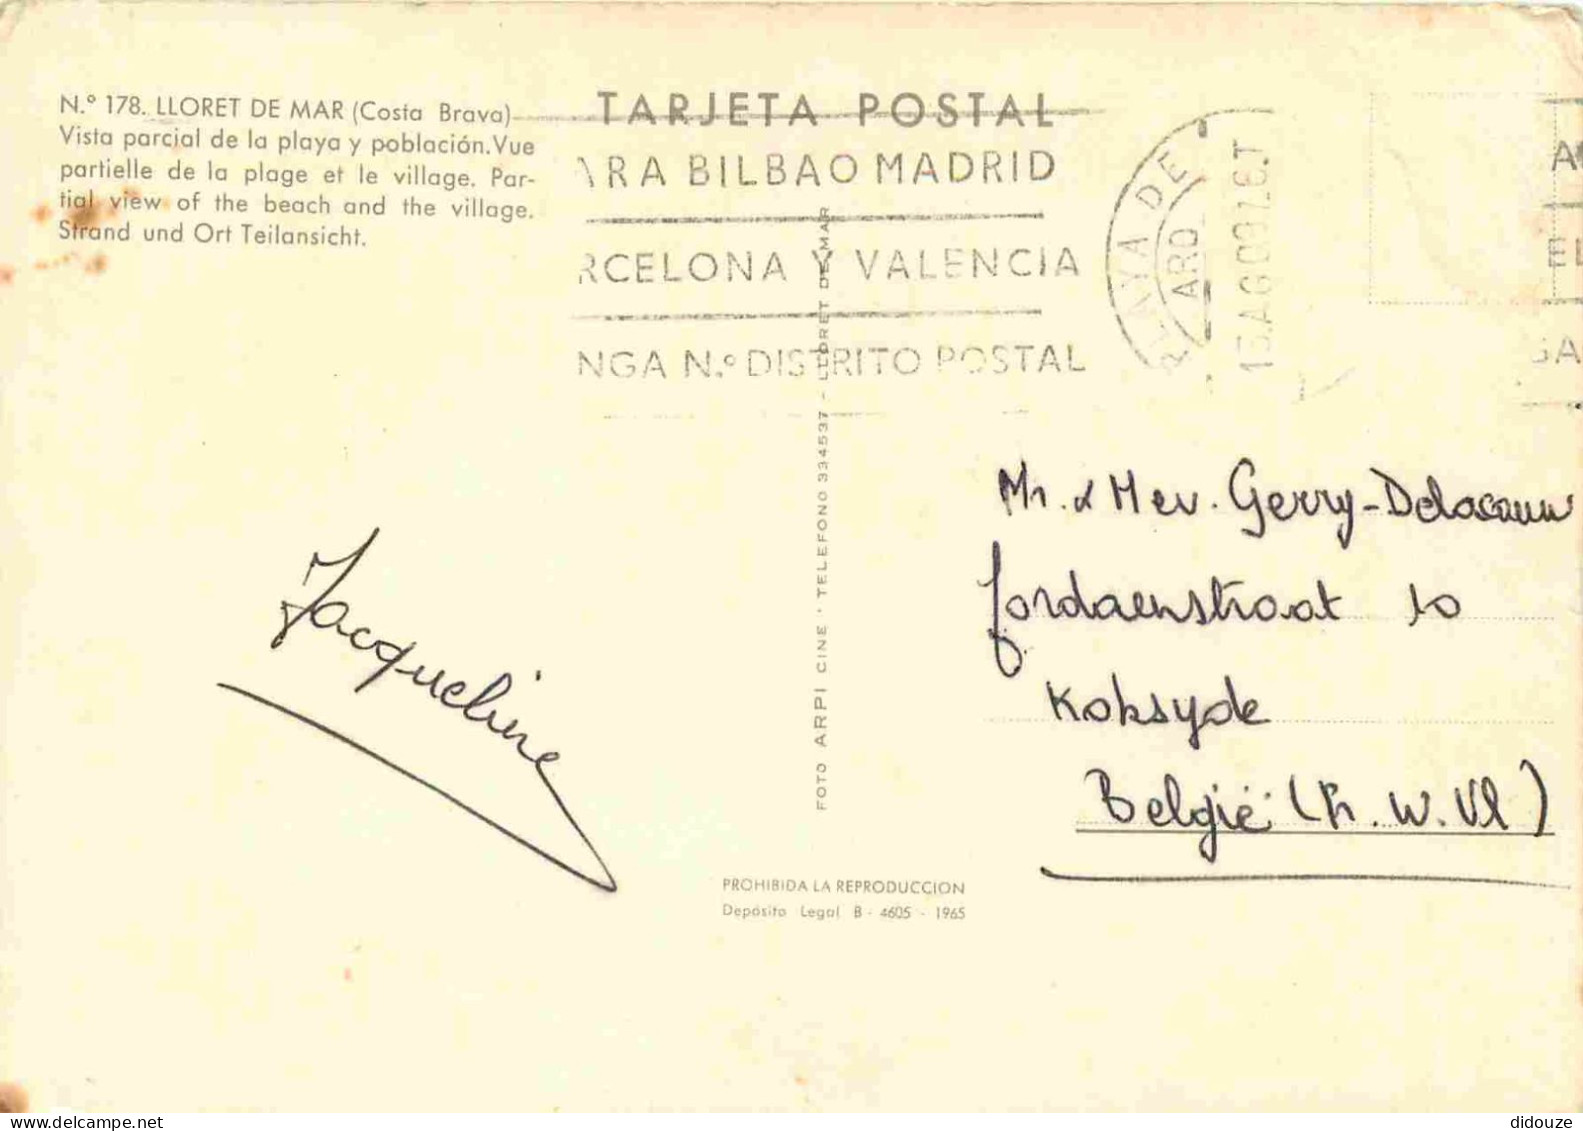 N.º 178. LLORET DE MAR (Costa Brava)
Vista parcial de la playa y población. Vue
partielle de la plage et le village. Par-
tial view of the beach and the village.
Strand und Ort Teilansicht.
TARJETA POSTAL
ARA BILBAO MADRID
RCELONA Y VALENCIA
NGA N.º DISTRITO POSTAL
PLAYA DE
ARO
AGO
A
EL
GA
FOTO ARPI CINE · TELEFONO 334537 - LLORET DE MAR
Jacqueline
Mr. & Mev. Gerry-
Jordaenstraat 10
Koksyde
België (W. Vl)
PROHIBIDA LA REPRODUCCION
Depósito Legal B - 4605 - 1965
didouze